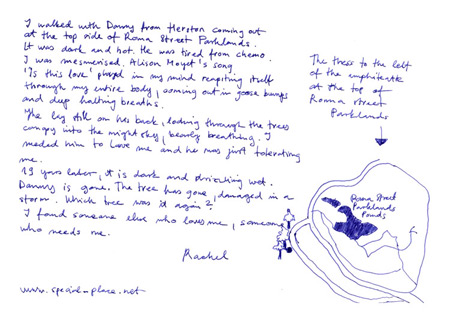 I walked with Danny from Herston coming out
at the top side of Roma Street Parklands.
It was dark and hot. He was tired from chemo.
I was mesmerised. Alison Moyet's song
'Is this love' played in my mind repeating itself
through my entire body, coming out in goose bumps
and deep halting breaths.
He lay still on his back, looking through the trees
canopy into the night sky, bearly breathing. I
needed him to love me and he was just tolerating
me.
19 years later, it is dark and drizzling wet.
Danny is gone. The tree has gone, damaged in a
storm. Which tree was it again?
I found someone else who loves me, someone
who needs me.
Rachel
www.special-place.net
The trees to the left
of the amphitheatre
at the top of
Roma Street
Parklands
Roma Street
Parklands
Ponds